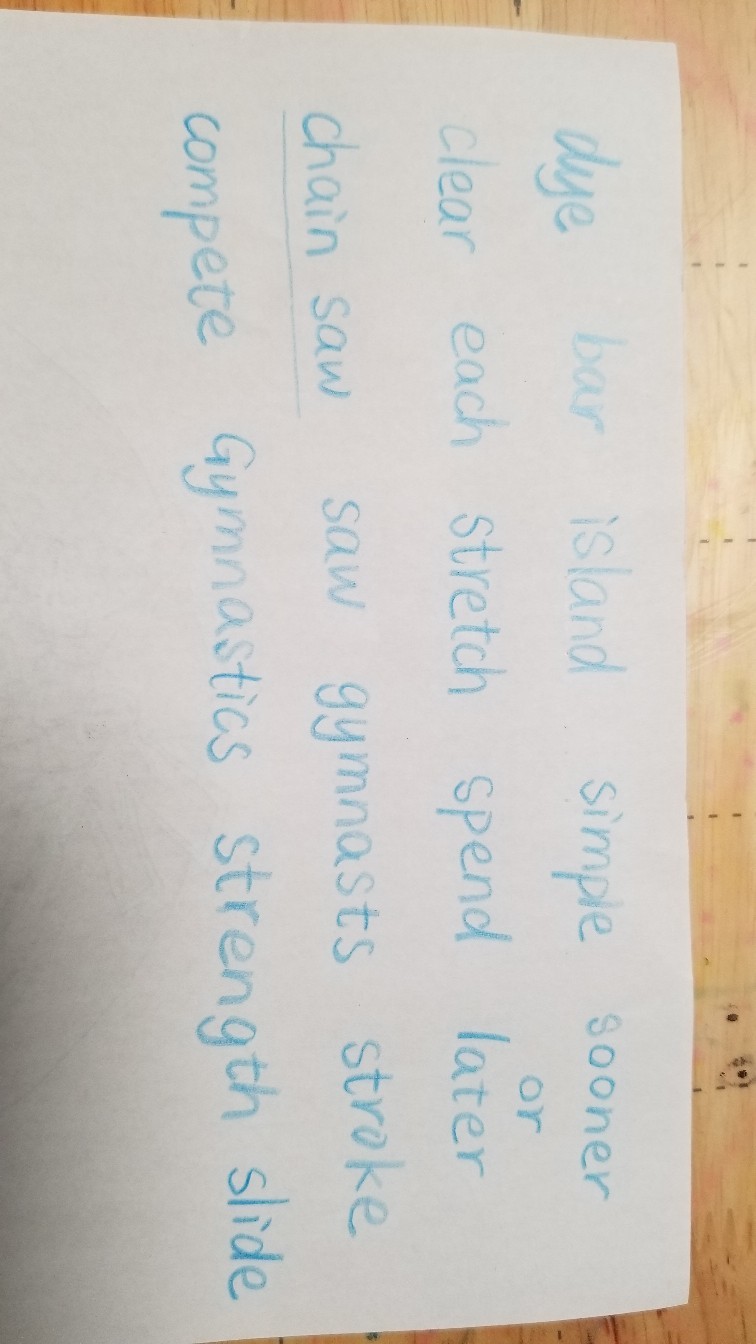 dye bar island simple sooner
or
clear each stretch spend later
chain saw saw gymnasts stroke
compete Gymnastics strength slide